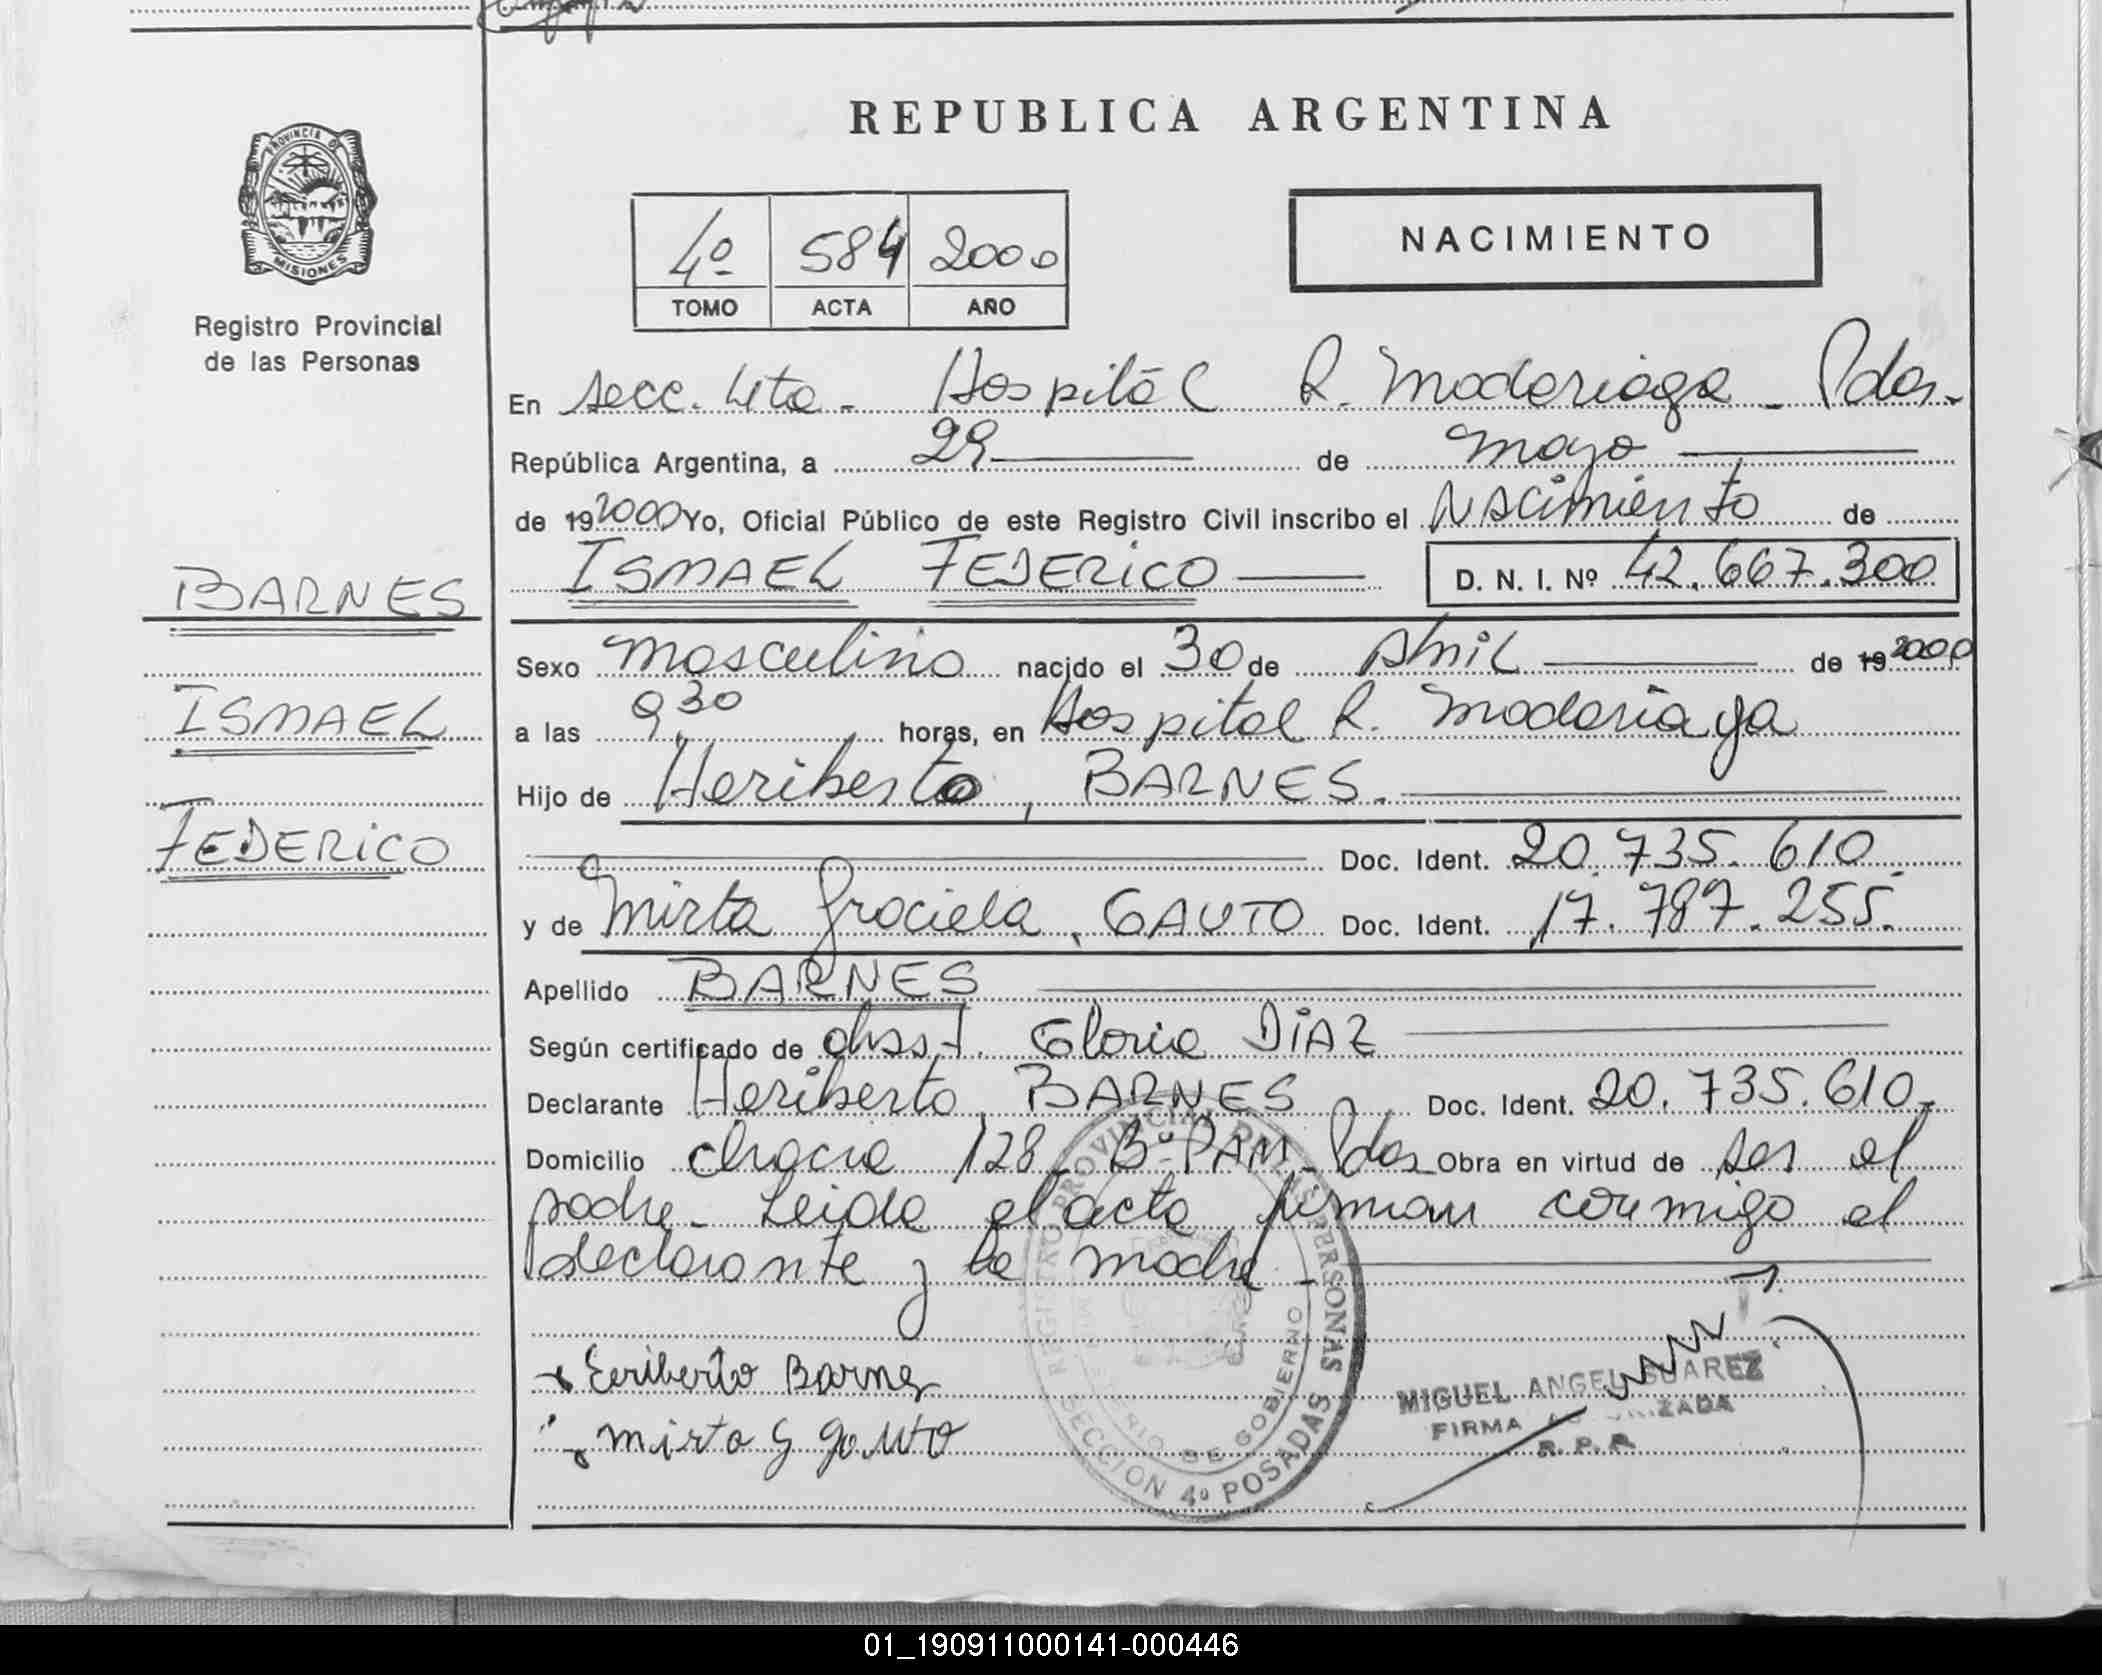 REPUBLICA ARGENTINA
PROVINCIA D
MISIONES
Registro Provincial
de las Personas
4º 584 2000
TOMO ACTA AÑO
NACIMIENTO
En Secc. 4ta - Hospital R. Madariaga - Pdas-
República Argentina, a 29 de mayo
de 192000 Yo, Oficial Público de este Registro Civil inscribo el Nacimiento de
ISMAEL FEDERICO D. N. I. Nº 42.667.300
BARNES
ISMAEL
FEDERICO
Sexo masculino nacido el 30 de Abril de 192000
a las 9,30 horas, en Hospital R. Madariaga
Hijo de Heriberto, BARNES.
Doc. Ident. 20.735.610.
y de Mirta Graciela, GAUTO Doc. Ident. 17.787.255.
Apellido BARNES
Según certificado de obst. Gloria DIAZ
Declarante Heriberto, BARNES Doc. Ident. 20.735.610-
Domicilio Chacra 128- Bº PAM- Pdas Obra en virtud de ser el
padre- Leida el acta firman conmigo el
declarante y la madre-
Eeriberto Barnes
Mirta G gauto
REGISTRO PROVINCIAL DE LAS PERSONAS
DE GOBIERNO
SECCION 4º POSADAS
MIGUEL ANGEL SUAREZ
FIRMA AUTORIZADA
R. P. P.
01_190911000141-000446